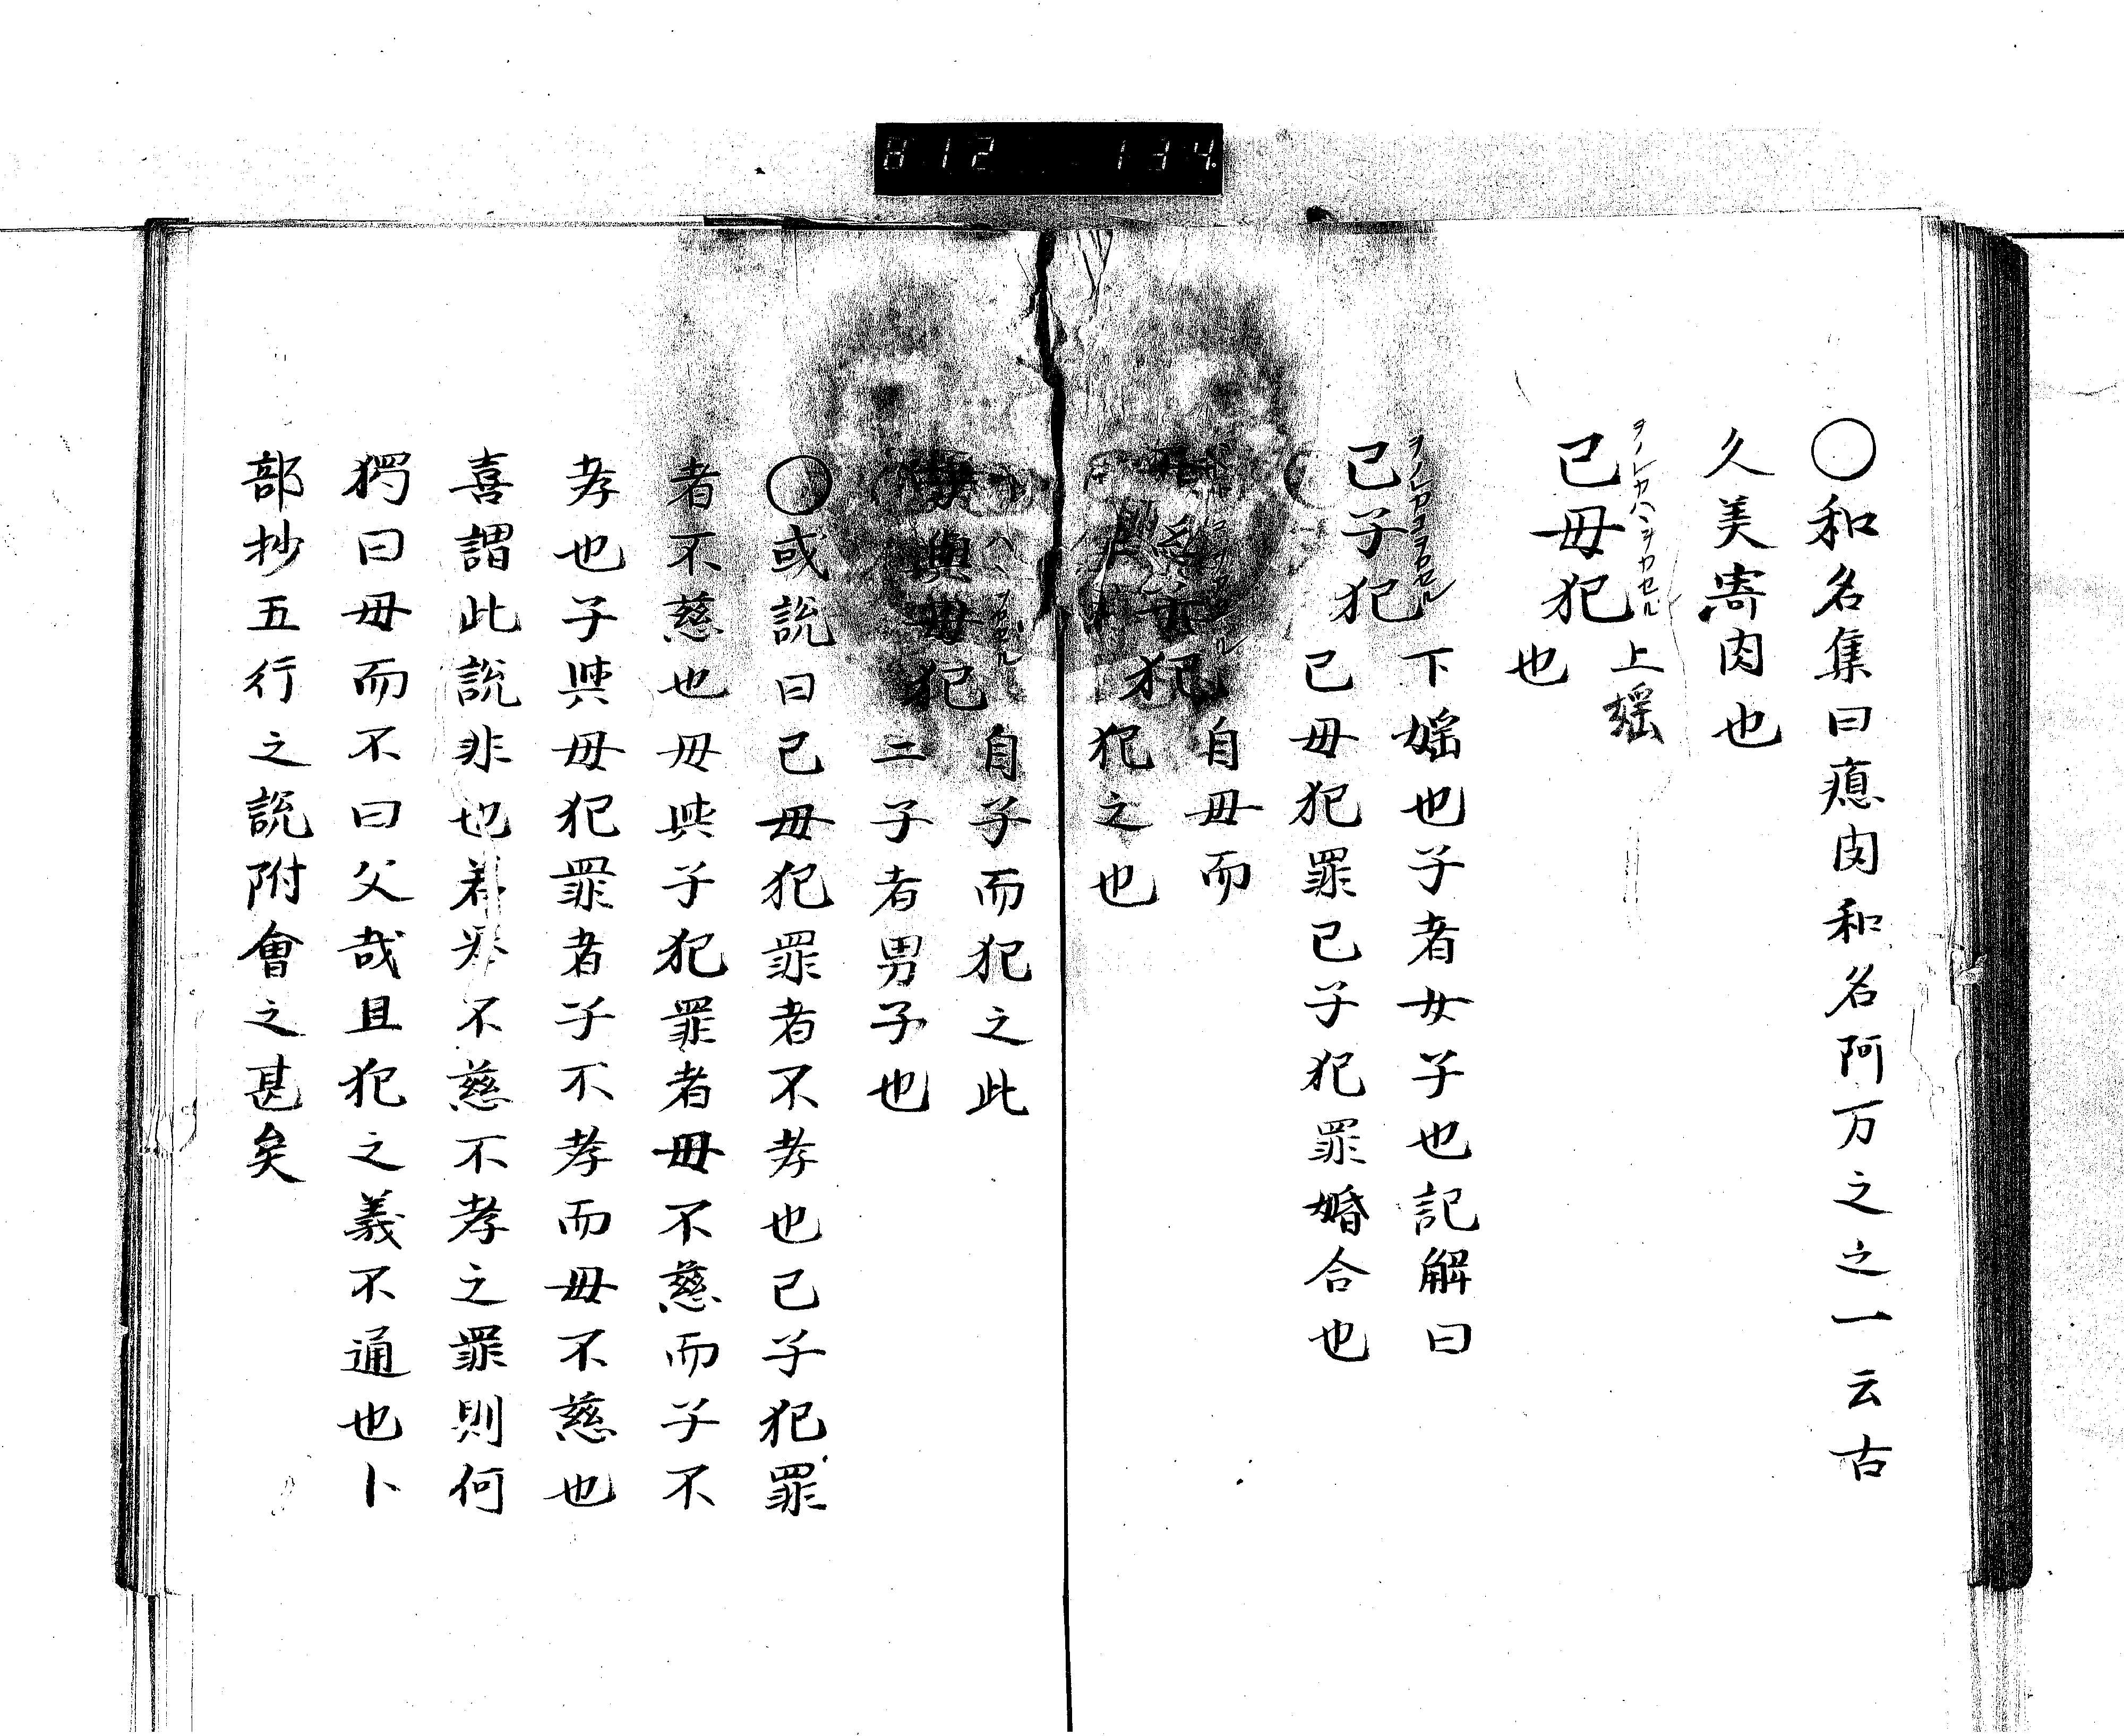 812 134
〇和名集曰瘜肉和名阿万之之一云古
久美寄肉也
己母犯
ヲノレカハヽヲカセル
上媱
也
己子犯
ヲノレカコヲカセル
下媱也子者女子也記解曰
己母犯罪己子犯罪婚合也
犯
自母而
犯之也
與母犯
自子而犯之此
二子者男子也
〇或説曰己母犯罪者不孝也己子犯罪
者不慈也母與子犯罪者母不慈而子不
孝也子與母犯罪者子不孝而母不慈也
喜謂此説非也若不慈不孝之罪則何
獨曰母而不曰父哉且犯之義不通也卜
部抄五行之説附會之甚矣